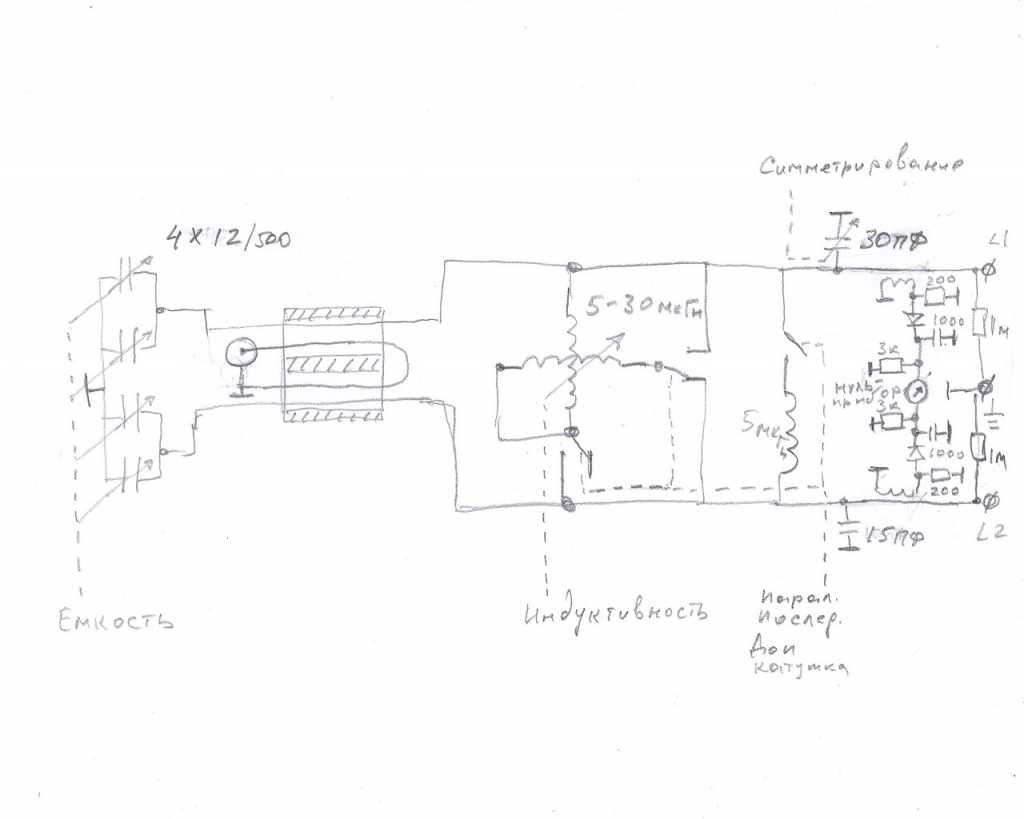 Симметрирование
4 x 12/500
30пФ
L1
5-30мкГн
200
1000
1м
3к
нуль-
прибор
3к
5мкГ
1000
1м
200
15пФ
L2
Емкость
Индуктивность
Парал.
Послед.
Доп
катушка